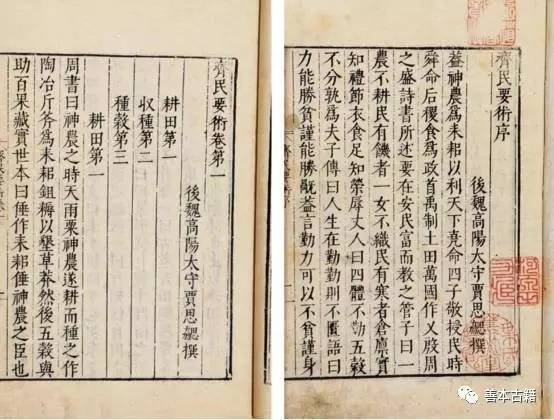 齊民要術序
後魏高陽太守賈思勰撰
葢神農爲耒耜以利天下堯命四子敬授民時
舜命后稷食爲政首禹制土田萬國作乂殷周
之盛詩書所述要在安民富而教之管子曰一
農不耕民有饑者一女不織民有寒者倉廩實
知禮節衣食足知榮辱丈人曰四體不勤五穀
不分孰爲夫子傳曰人生在勤勤則不匱語曰
力能勝貧謹能勝禍葢言勤力可以不貧謹身
齊民要術卷第一
後魏高陽太守賈思勰撰
耕田第一
收種第二
種穀第三
耕田第一
周書曰神農之時天雨粟神農遂耕而種之作
陶冶斤斧爲耒耜鉏耨以墾草莽然後五穀興
助百果藏實世本曰倕作耒耜倕神農之臣也
善本古籍